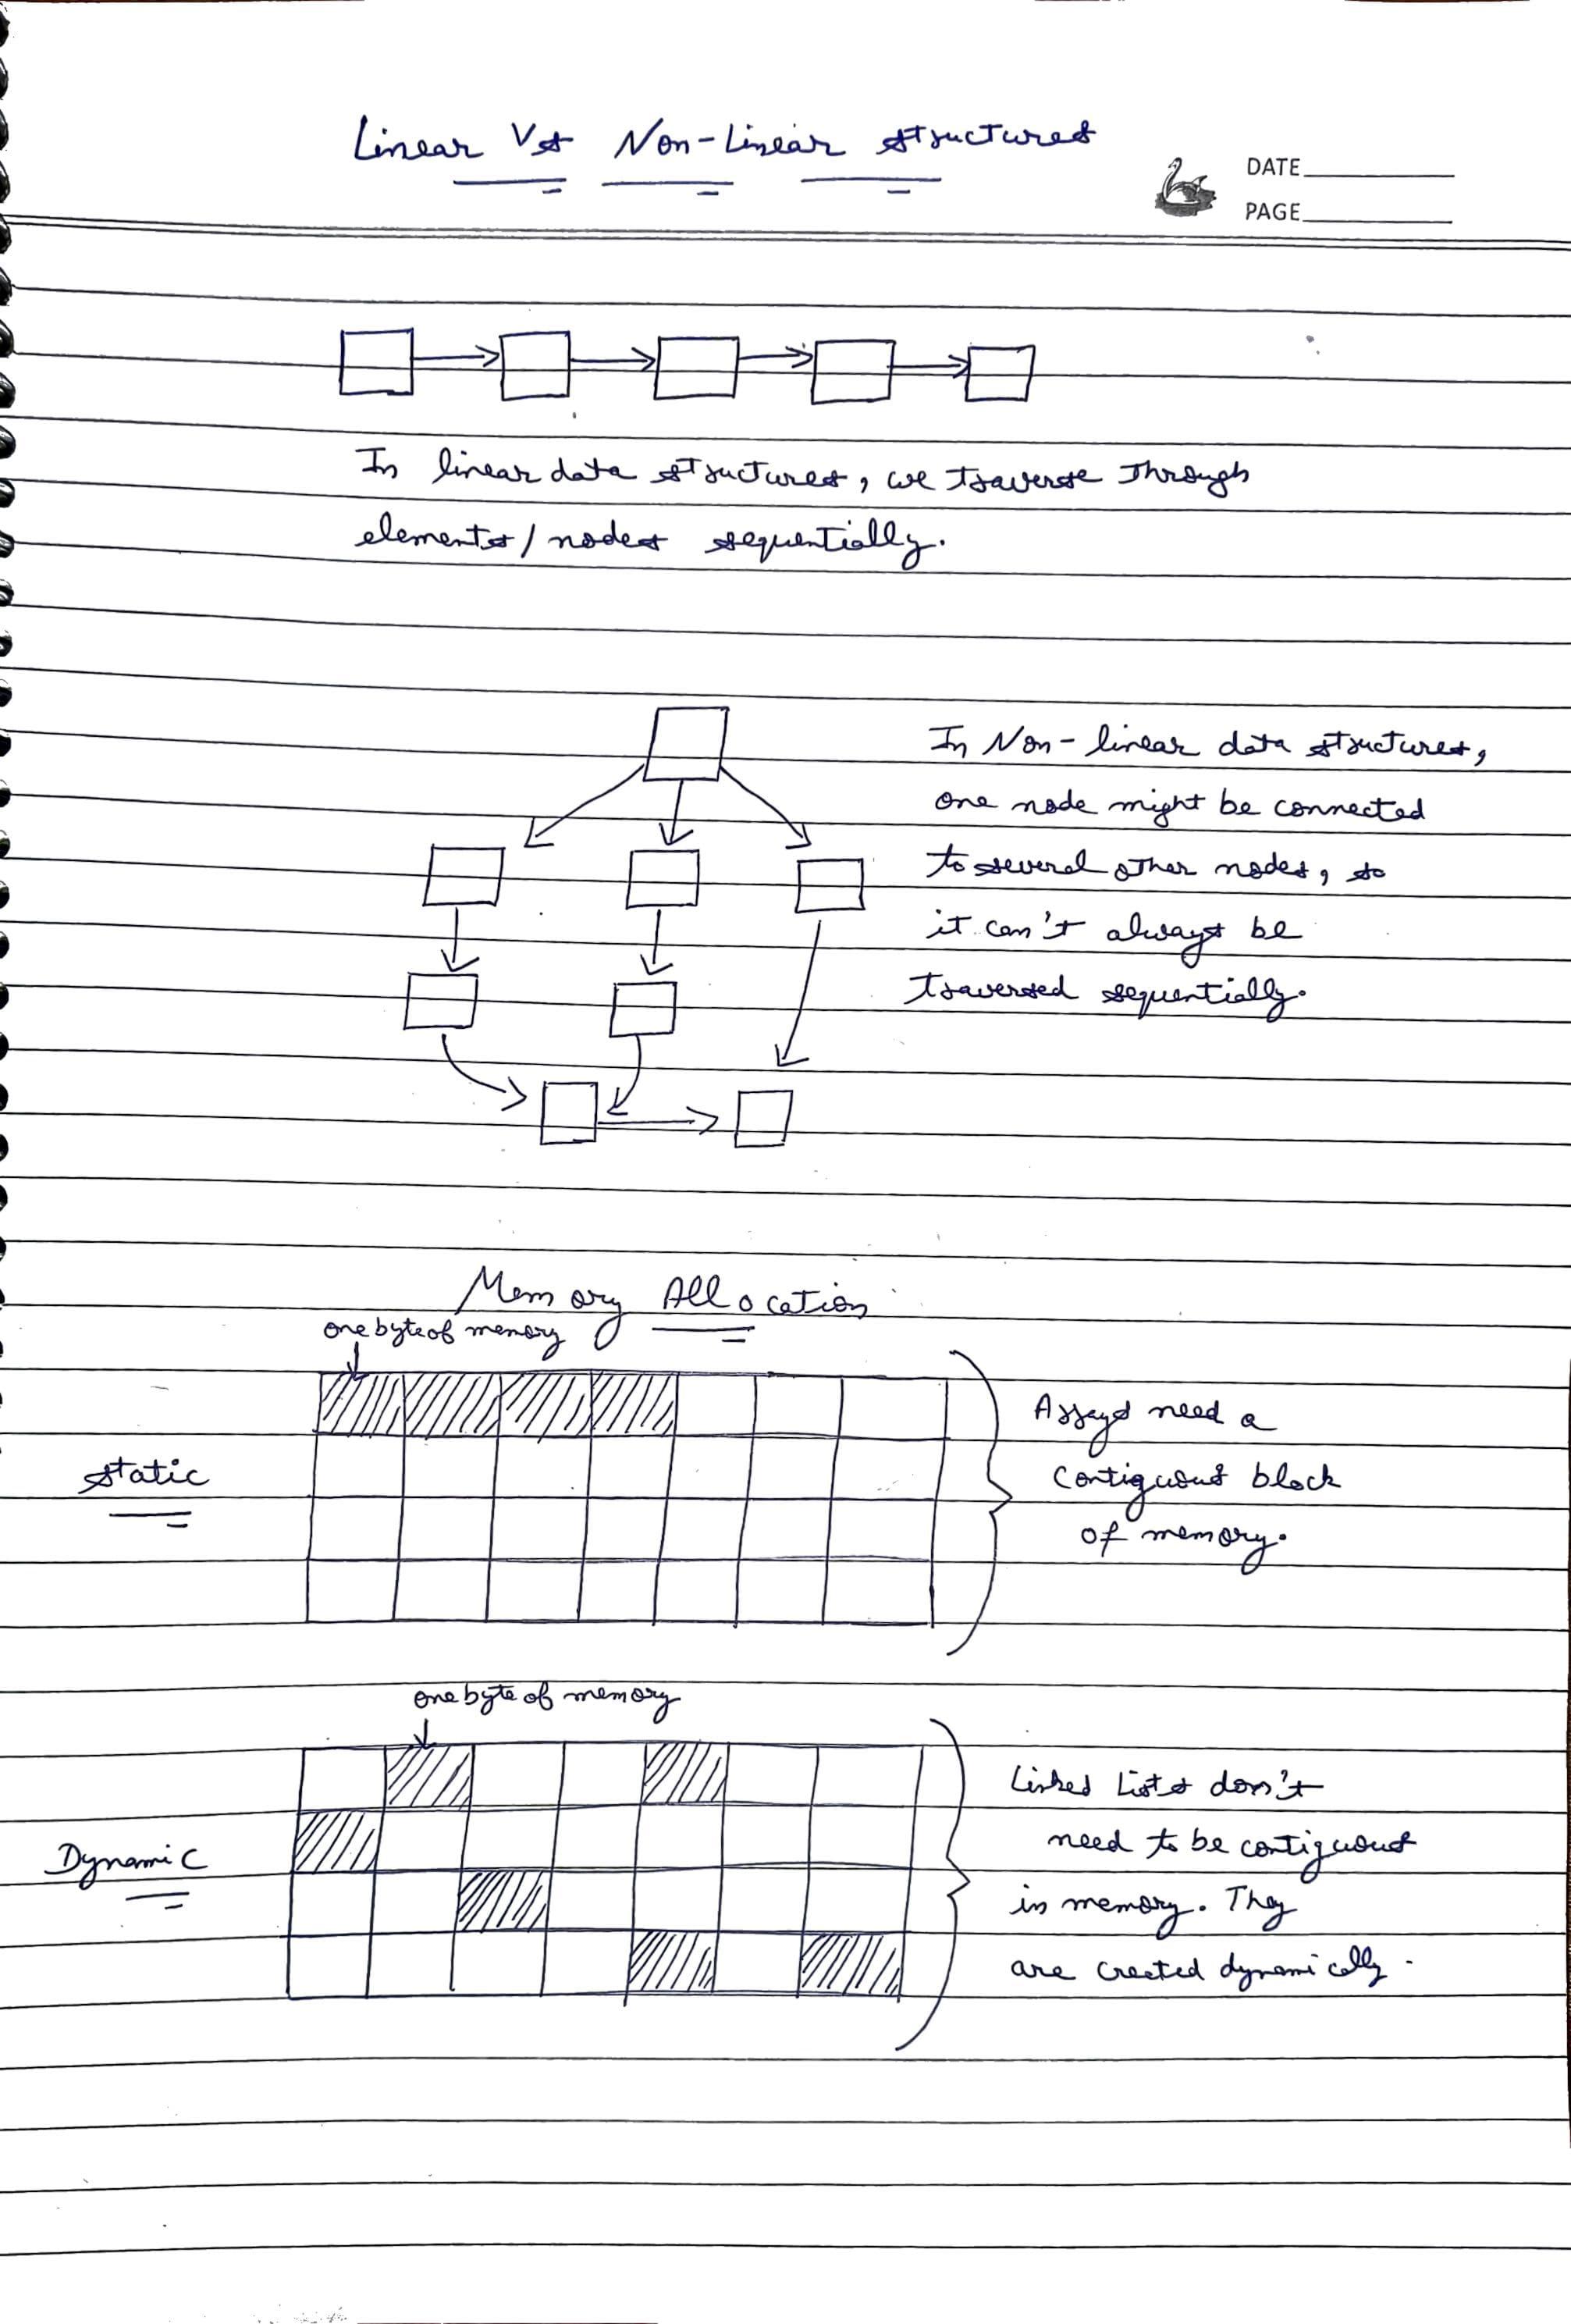 Linear Vs Non-Linear structures
DATE
PAGE
In linear data structures, we traverse through
elements/nodes sequentially.
In Non-linear data structures,
one node might be connected
to several other nodes, so
it can't always be
traversed sequentially.
Memory Allocation
one byte of memory
static
Arrays need a
contiguous block
of memory.
one byte of memory
Dynamic
Linked Lists don't
need to be contiguous
in memory. They
are created dynamically.